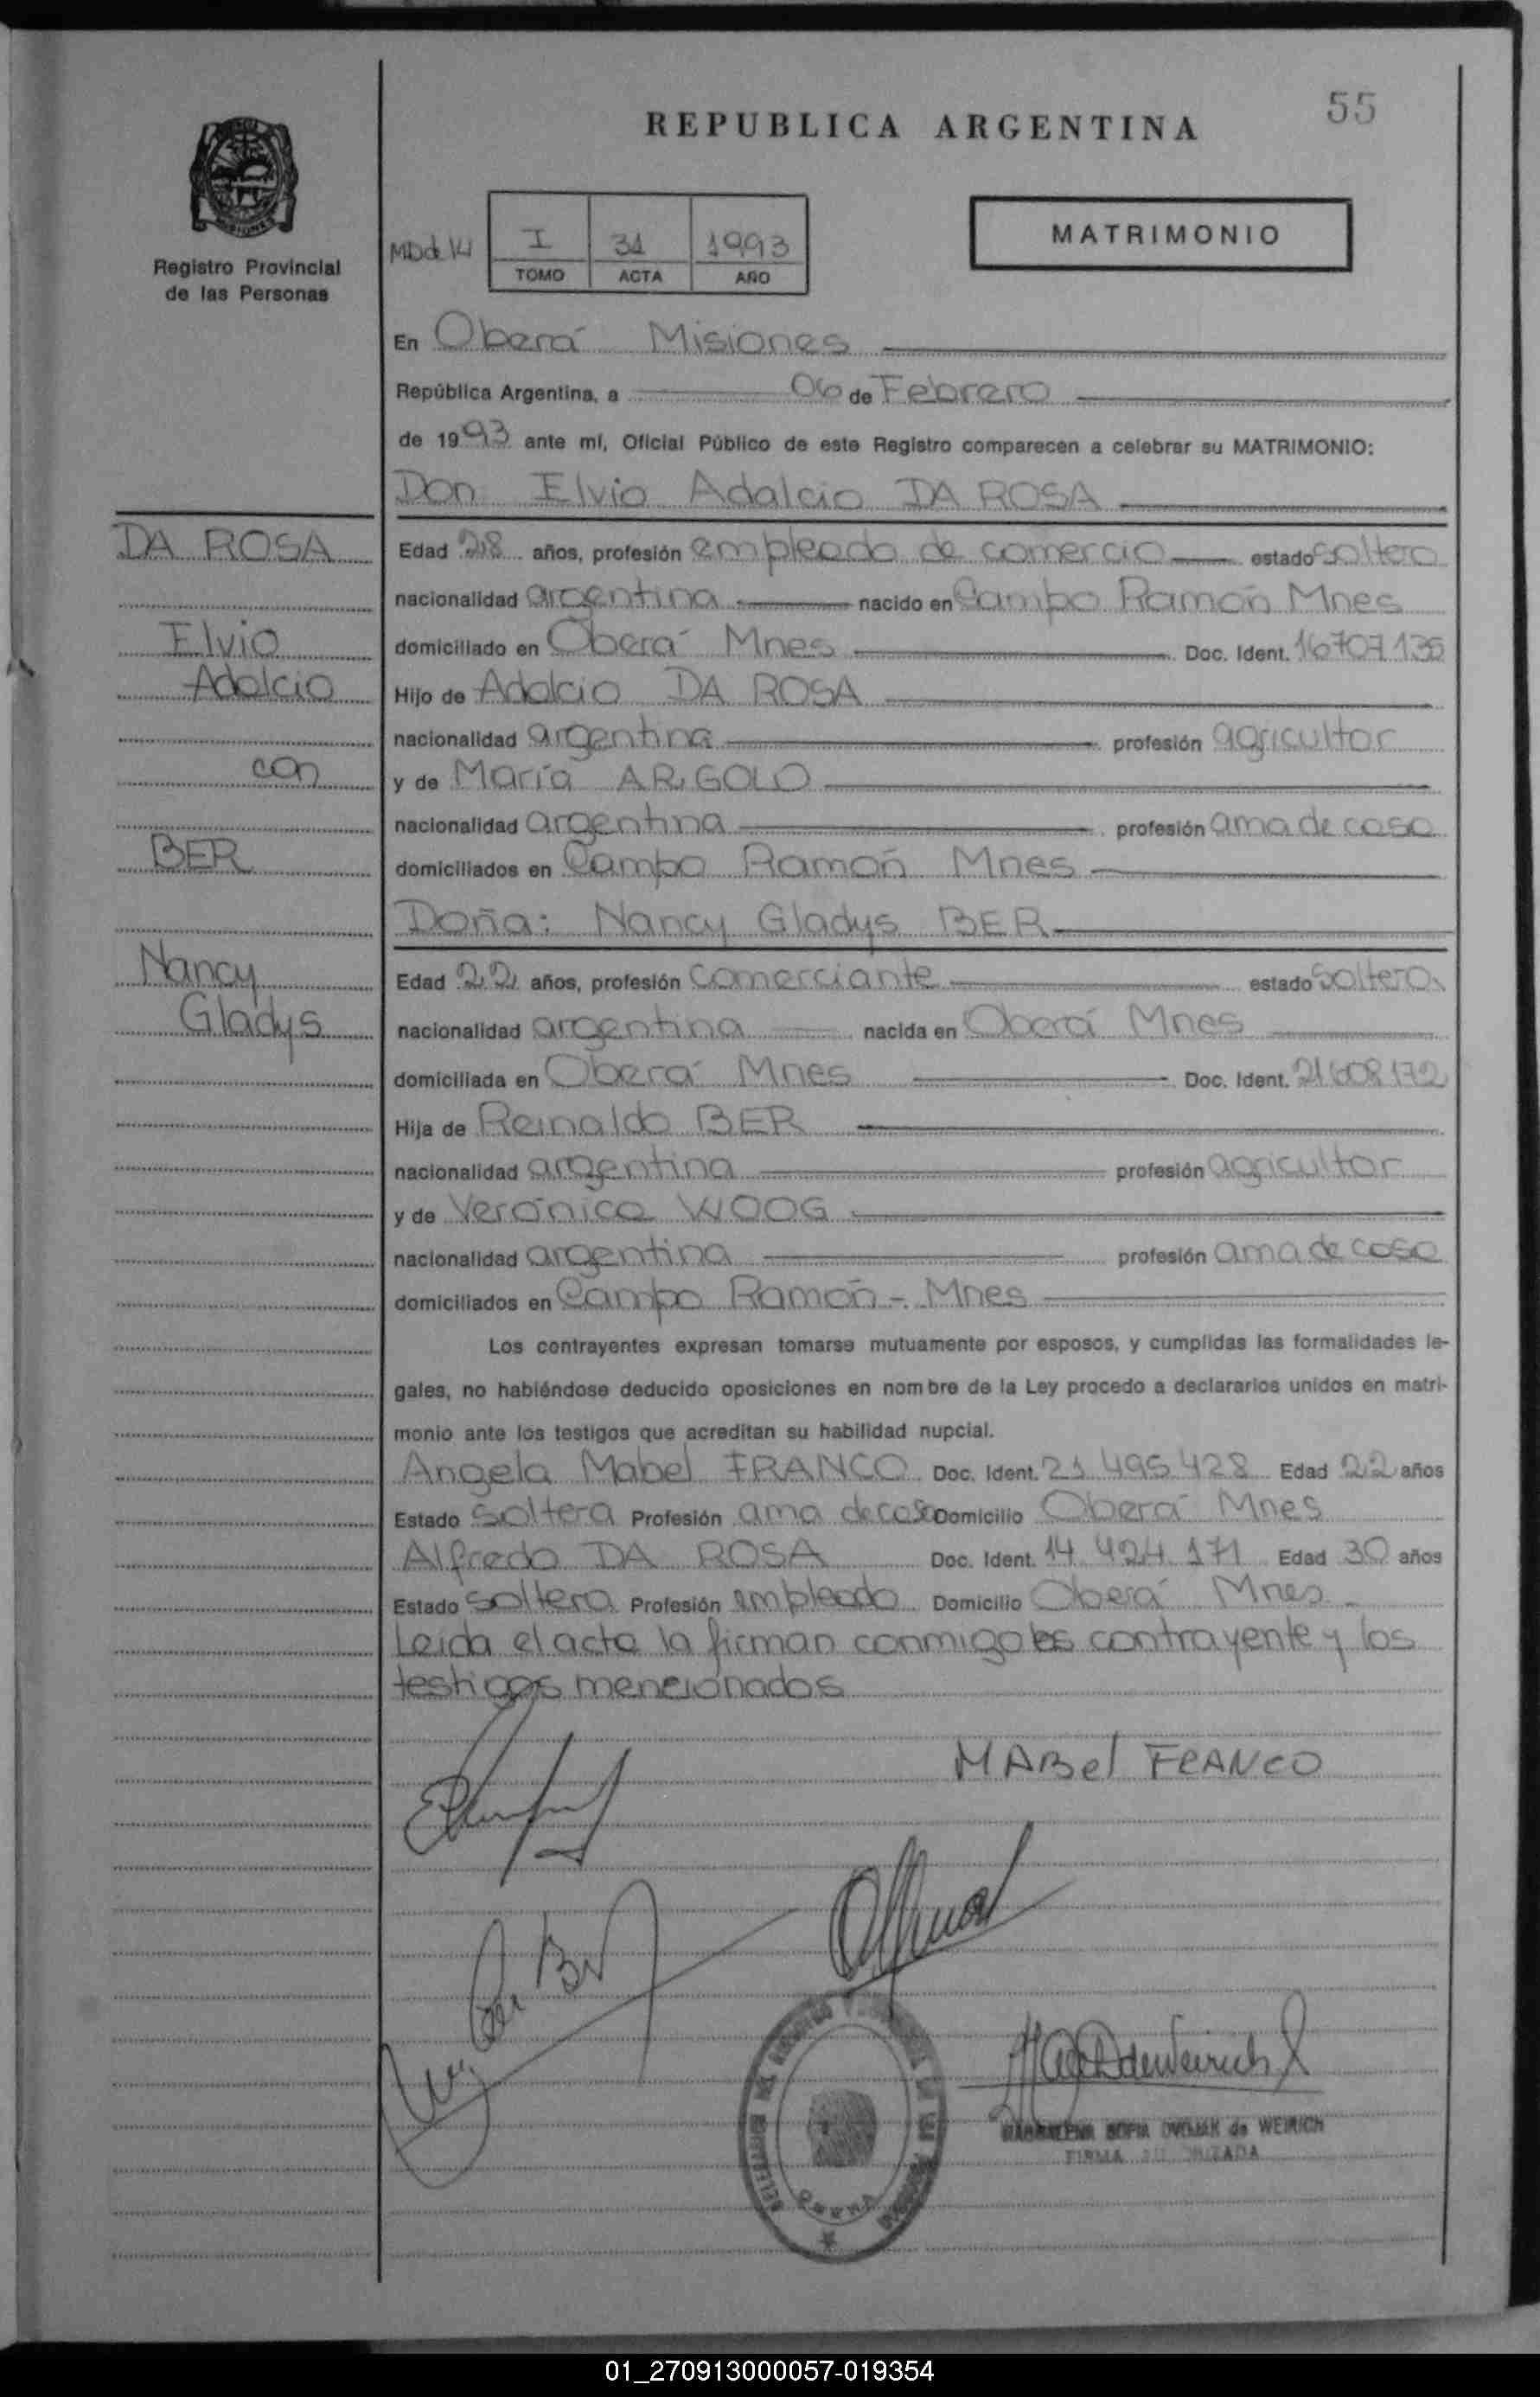 55
REPUBLICA ARGENTINA
MISIONES
Registro Provincial
de las Personas
I 31 1993
TOMO ACTA AÑO
MATRIMONIO
En Oberá Misiones
República Argentina, a 06 de Febrero
de 1993 ante mí, Oficial Público de este Registro comparecen a celebrar su MATRIMONIO:
Don Elvio Adalcio DA ROSA
DA ROSA
Elvio
Adalcio
con
BER
Nancy
Gladys
Edad 28 años, profesión empleado de comercio estado soltero
nacionalidad argentina nacido en Campo Ramón Mnes
domiciliado en Oberá Mnes Doc. Ident. 16707135
Hijo de Adalcio DA ROSA
nacionalidad argentina profesión agricultor
y de María ARIGOLO
nacionalidad argentina profesión ama de casa
domiciliados en Campo Ramón Mnes
Doña: Nancy Gladys BER
Edad 22 años, profesión comerciante estado soltera
nacionalidad argentina nacida en Oberá Mnes
domiciliada en Oberá Mnes Doc. Ident. 21608172
Hija de Reinaldo BER
nacionalidad argentina profesión agricultor
y de Verónica WOOG
nacionalidad argentina profesión ama de casa
domiciliados en Campo Ramón - Mnes
Los contrayentes expresan tomarse mutuamente por esposos, y cumplidas las formalidades le-
gales, no habiéndose deducido oposiciones en nombre de la Ley procedo a declararlos unidos en matri-
monio ante los testigos que acreditan su habilidad nupcial.
Angela Mabel FRANCO Doc. Ident. 21 495 428 Edad 22 años
Estado soltera Profesión ama de casa Domicilio Oberá Mnes
Alfredo DA ROSA Doc. Ident. 14 424 171 Edad 30 años
Estado soltero Profesión empleado Domicilio Oberá Mnes
Leida el acta la firman conmigo los contrayente y los
testigos mencionados
MABel FRANCO
SOFIA DVOJAK de WEIRICH
FIRMA AUTORIZADA
OBERA
01_270913000057-019354